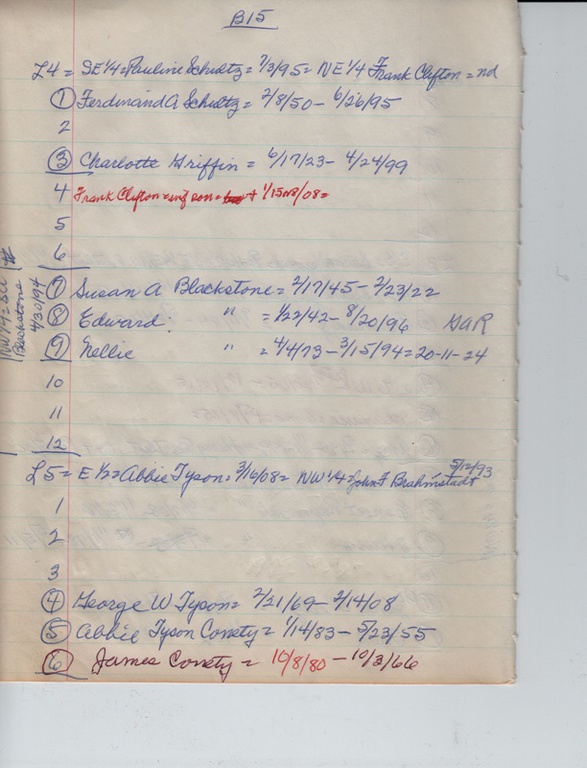 B15
L4 = SE 1/4 = Pauline Schultz = 7/3/95 = NE 1/4 Frank Clifton = nd
1 Ferdinand A Schultz = 2/8/50 - 6/26/95
2
3 Charlotte Griffin = 6/17/23 - 4/24/99
4 Frank Clifton = inf son = + 1/15 /08 =
5
6
NW 1/4 =
Blackstone
4/30/94
7 Susan A Blackstone = 2/17/45 - 2/23/22
8 Edward " = 1/22/42 - 8/20/96 GAR
9 Nellie " = 4/4/73 - 3/15/94 = 20-11-24
10
11
12
L5 = E 1/2 = Abbie Tyson = 3/16/08 = NW 1/4 = John F Brahmstadt 5/12/93
1
2
3
4 George W Tyson = 2/21/69 - 2/14/08
5 Abbie Tyson Conety = 1/14/83 - 5/23/55
6 James Conety = 10/8/80 - 10/3/66